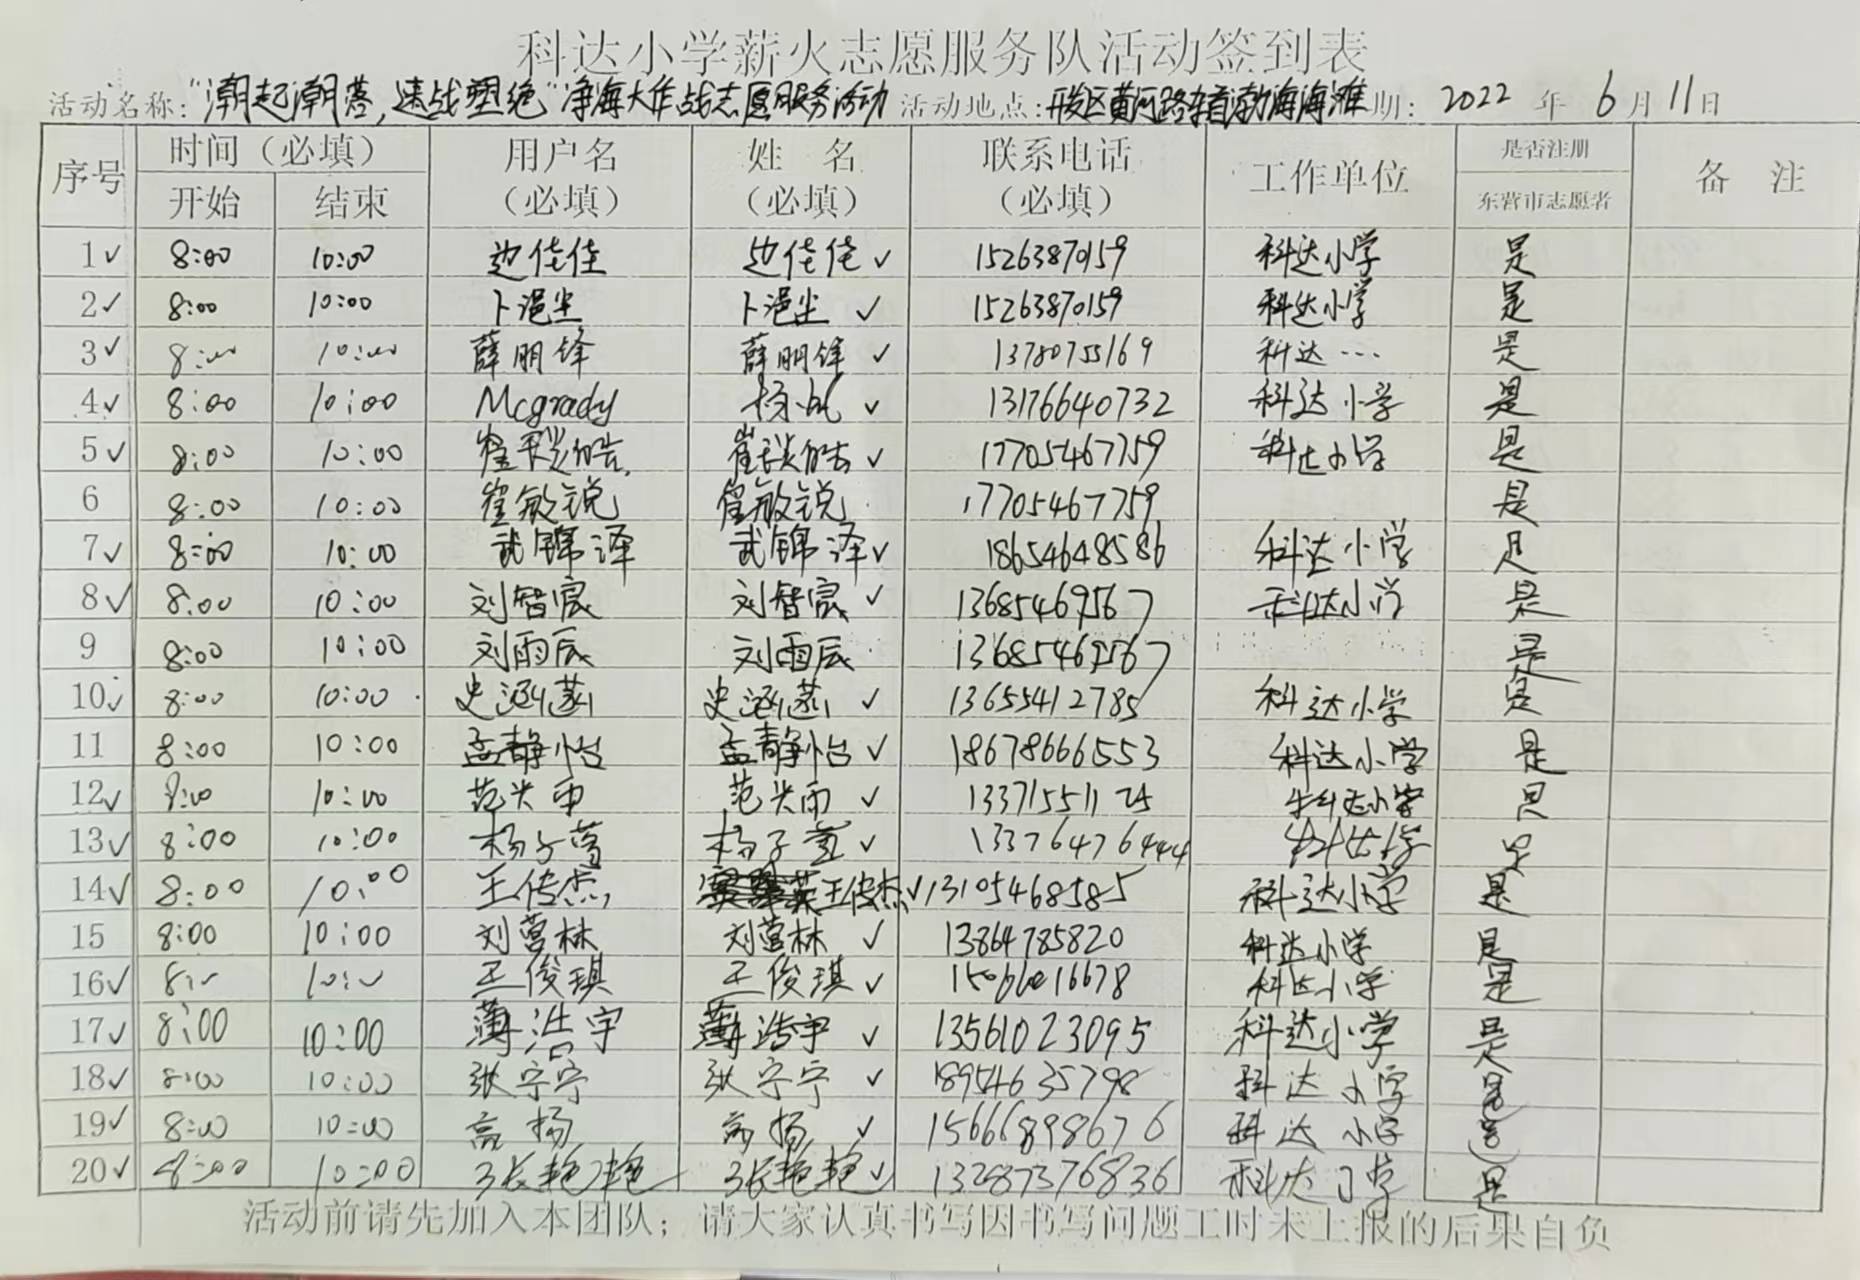 科达小学薪火志愿服务队活动签到表
活动名称:"潮起潮落,速战塑绝"净海大作战志愿服务活动 活动地点:开发区黄河路东首渤海海滩 期: 2022 年 6 月 11 日
序号 时间(必填) 用户名(必填) 姓 名(必填) 联系电话(必填) 工作单位 是否注册东营市志愿者 备 注
开始 结束
1✓ 8:00 10:00 边佳佳 边佳佳✓ 15263870159 科达小学 是
2✓ 8:00 10:00 卜浥尘 卜浥尘✓ 15263870159 科达小学 是
3✓ 8:00 10:00 薛明锋 薛明锋✓ 13780755169 科达… 是
4✓ 8:00 10:00 Mcgrady 杨帆✓ 13176640732 科达小学 是
5✓ 8:00 10:00 ✓ 17705467759 科达小学 是
6 8:00 10:00 崔敏锐 崔敏锐 17705467759 是
7✓ 8:00 10:00 武锦泽 武锦泽✓ 18654648586 科达小学 是
8✓ 8:00 10:00 刘智宸 刘智宸✓ 13685469567 科达小学 是
9 8:00 10:00 刘雨辰 刘雨辰 13685469567 是
10✓ 8:00 10:00 史涵 史涵 ✓ 13655412785 科达小学 是
11 8:00 10:00 孟静怡 孟静怡✓ 18678666553 科达小学 是
12✓ 8:00 10:00 范兴雨 范兴雨✓ 13371551125 科达小学 是
13✓ 8:00 10:00 杨子萱 杨子萱✓ 13376476444 科达小学 是
14✓ 8:00 10:00 王传杰 王传杰✓ 13105468585 科达小学 是
15 8:00 10:00 刘萱林 刘萱林✓ 13864785820 科达小学 是
16✓ 8:00 10:00 王俊琪 王俊琪✓ 15066016678 科达小学 是
17✓ 8:00 10:00 薄浩宇 薄浩宇✓ 13561023095 科达小学 是
18✓ 8:00 10:00 张宁宁 张宁宁✓ 18954635798 科达小学 是
19✓ 8:00 10:00 高扬 高扬✓ 15666898676 科达小学 是
20✓ 8:00 10:00 张艳艳 张艳艳✓ 13287376836 科达小学 是
活动前请先加入本团队;请大家认真书写因书写问题工时未上报的后果自负